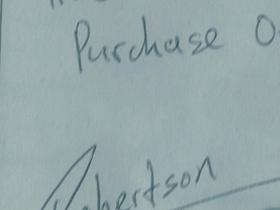 Purchase O
Robertson